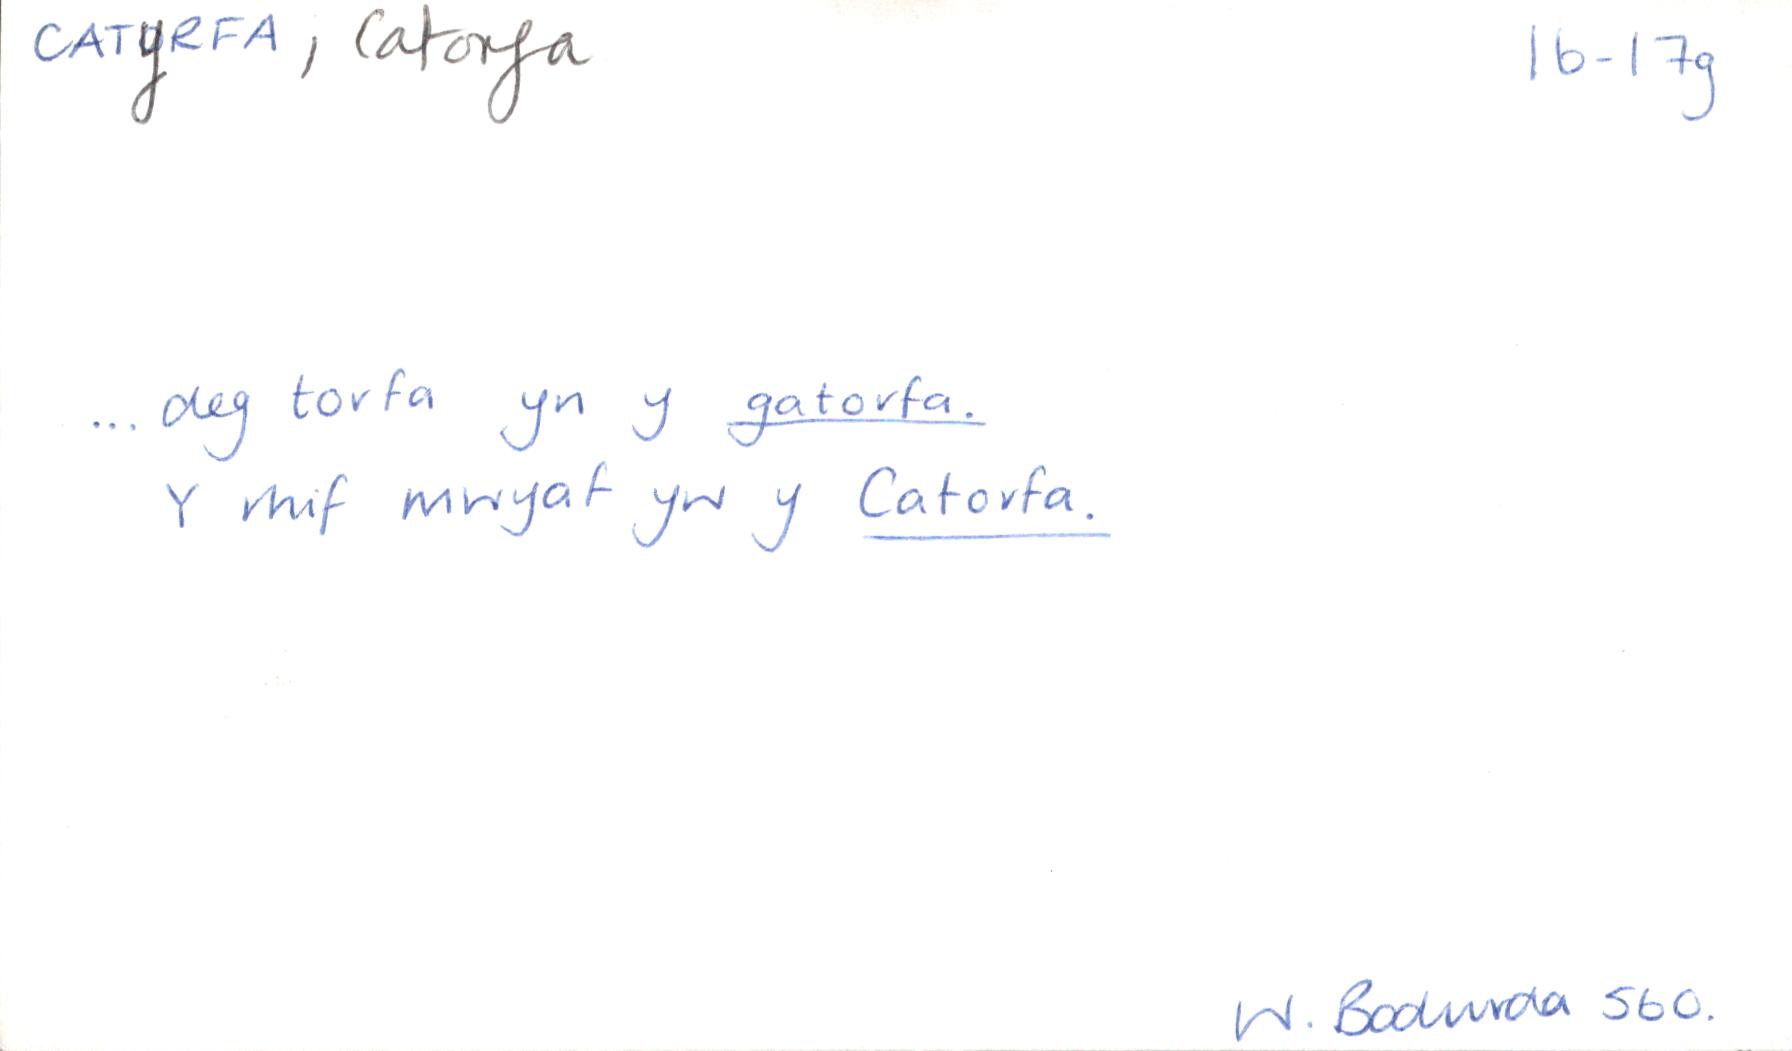 CATYRFA, Catorfa 16-17g
... deg torfa yn y gatorfa.
Y rhif mwyaf yw y Catorfa.
W. Bodwrda 560.